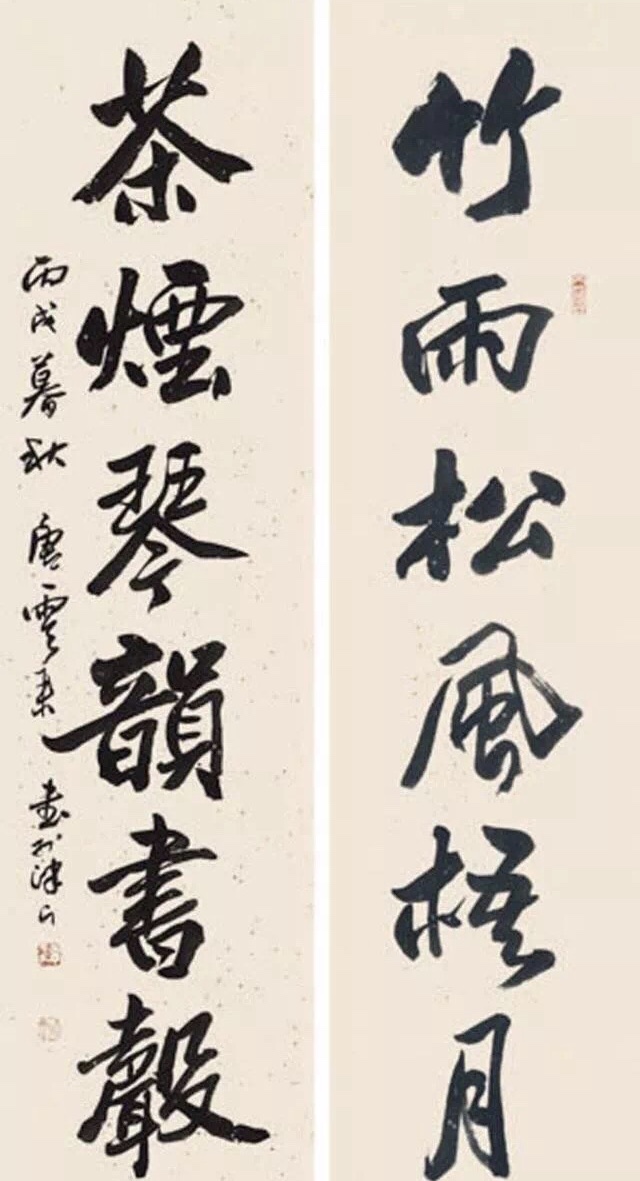 竹雨松風梧月
茶煙琴韻書聲
丙戌暮秋 唐雲來 書於津门